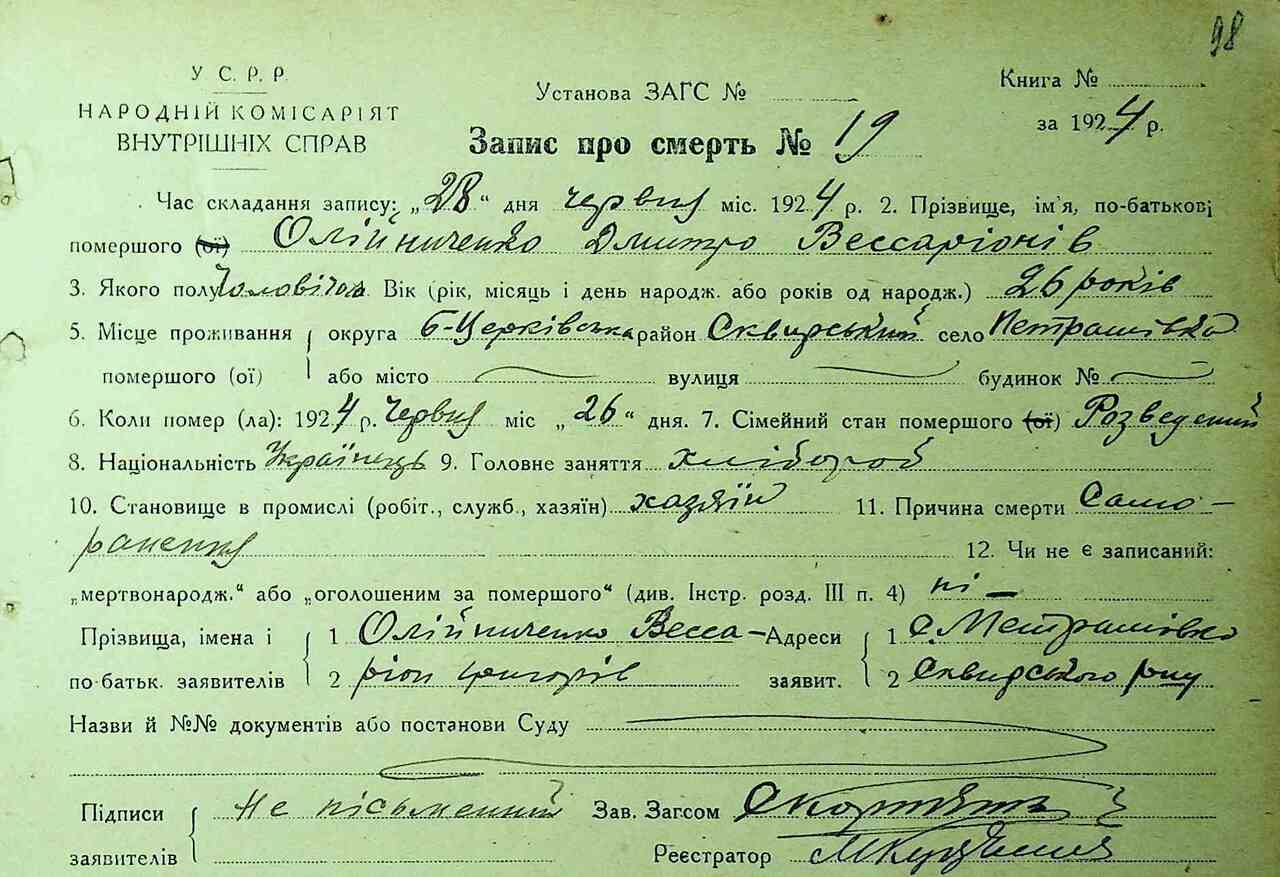 98
У С. Р. Р.
НАРОДНІЙ КОМІСАРІЯТ
ВНУТРІШНІХ СПРАВ
Установа ЗАГС №
Книга №
за 1924 р.
Запис про смерть № 19
Час складання запису: „28“ дня червня міс. 1924 р. 2. Прізвище, ім'я, по-батькові
помершого (ої) Олійниченко Дмитро Вессаріонів
3. Якого полу Чоловічого Вік (рік, місяць і день народж. або років од народж.) 26 років
5. Місце проживання округа Б-Церківська район Сквирський село Петрашівка
помершого (ої) або місто вулиця будинок №
6. Коли помер (ла): 1924 р. Червня міс „26“ дня. 7. Сімейний стан помершого (ої) Розведений
8. Національність Українець 9. Головне заняття хлібороб
10. Становище в промислі (робіт., служб., хазяїн) хазяїн 11. Причина смерти Само-
ранення 12. Чи не є записаний:
„мертвонародж.“ або „оголошеним за помершого“ (див. Інстр. розд. III п. 4) ні —
Прізвища, імена і 1 Олійниченко Весса- Адреси 1 с. Петрашівка
по-батьк. заявителів 2 ріон Григорів заявит. 2 Сквирського р-ну
Назви й №№ документів або постанови Суду
Підписи Не письменний Зав. Загсом
заявителів Реєстратор